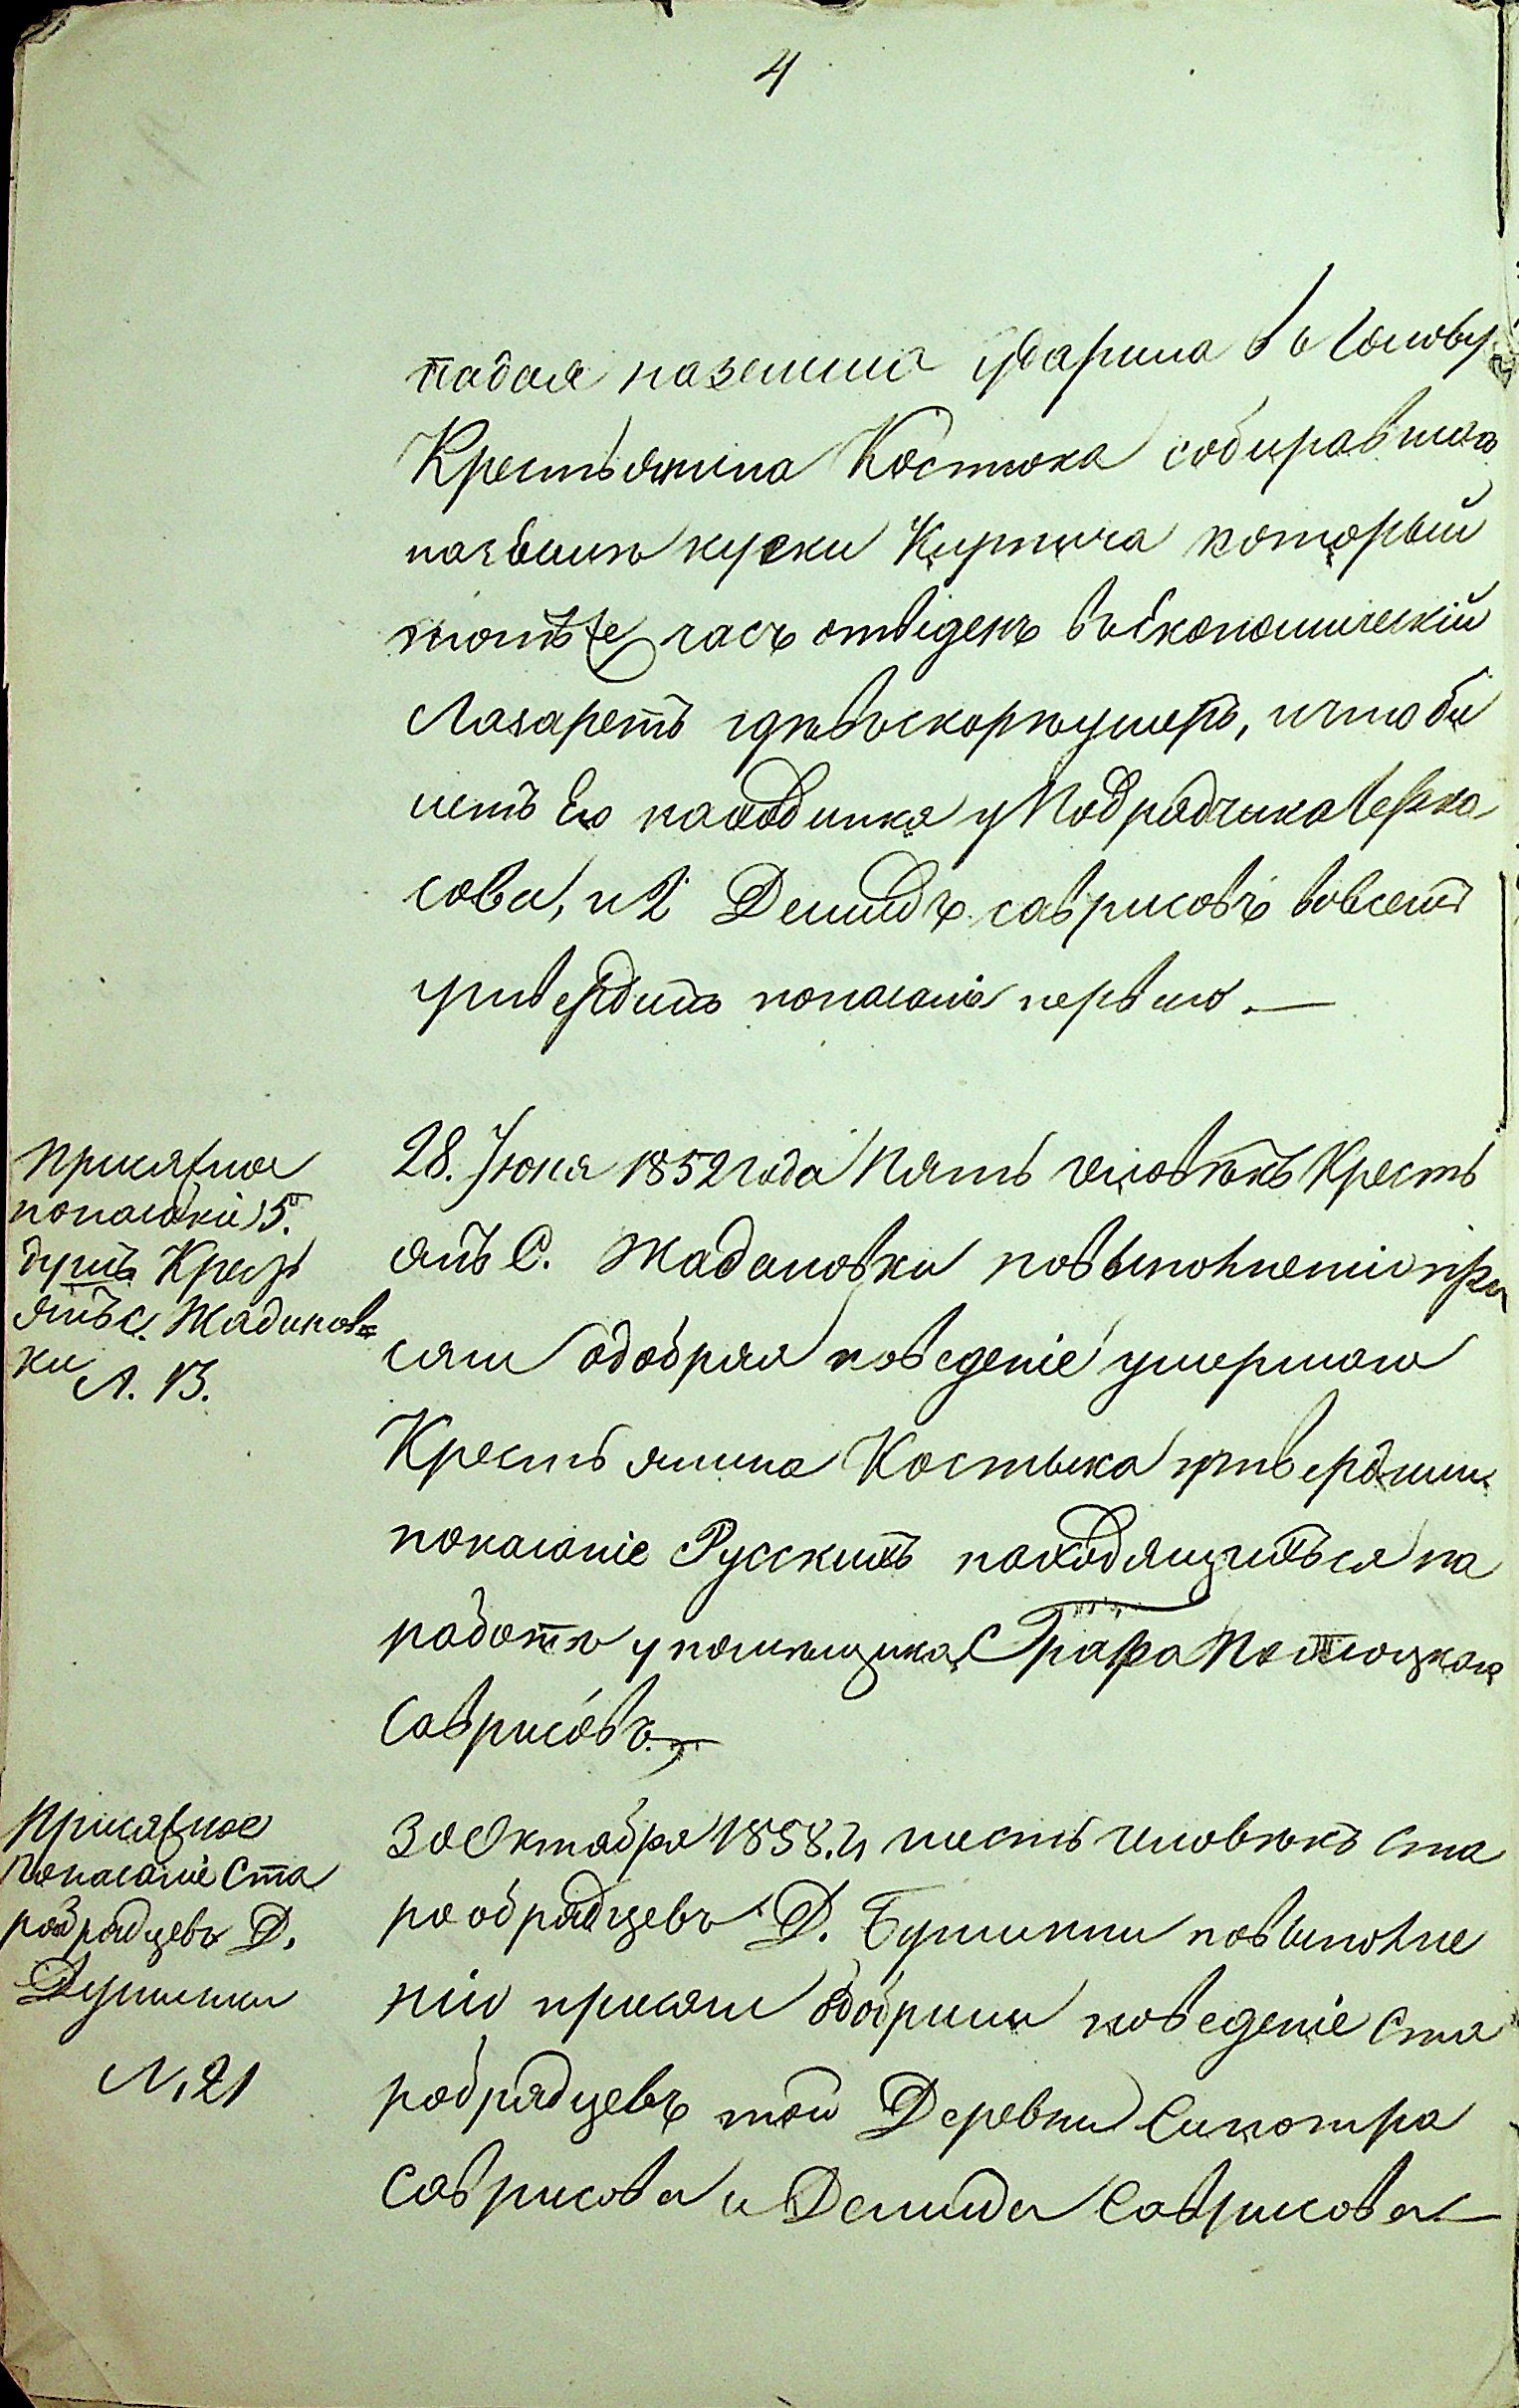 4
падая наземлю ударила въ Голову
Крестьянина Костюка собиравшаго
куски Кирпича который
тотъ же часъ отвіденъ въ Економическій
Лазаретъ гдѣ въскорѣ умеръ, и что би
летъ Его находится у Подрядчика Черка
сова, и 2 Демидъ Саврисовъ вовсемъ
утвердилъ показаніе перваго. —
Присяжное
показаніе 5.
душъ Крестъ
янъ с. Жадановъ
ки Л. 13.
28. Іюня 1852 года Пять человѣкъ Кресть
янъ С. Жадановки повыполненію при
сяги одобряя поведеніе умершаго
Крестьянина Костюка утвердили
показаніе Русскихъ находящихъся на
работѣ у помѣщика Графа Потоцкаго
Саврисовъ.
Присяжное
показаніе Ста
робрядцевъ Д.
Л. 21
30 Октября 1858. г. шесть человѣкъ Ста
рообрядцевъ Д. повыполне
нію присяги одобрили поведеніе Ста
робрядцевъ той Деревни Сипатра
Саврисова и Демида Саврисова —